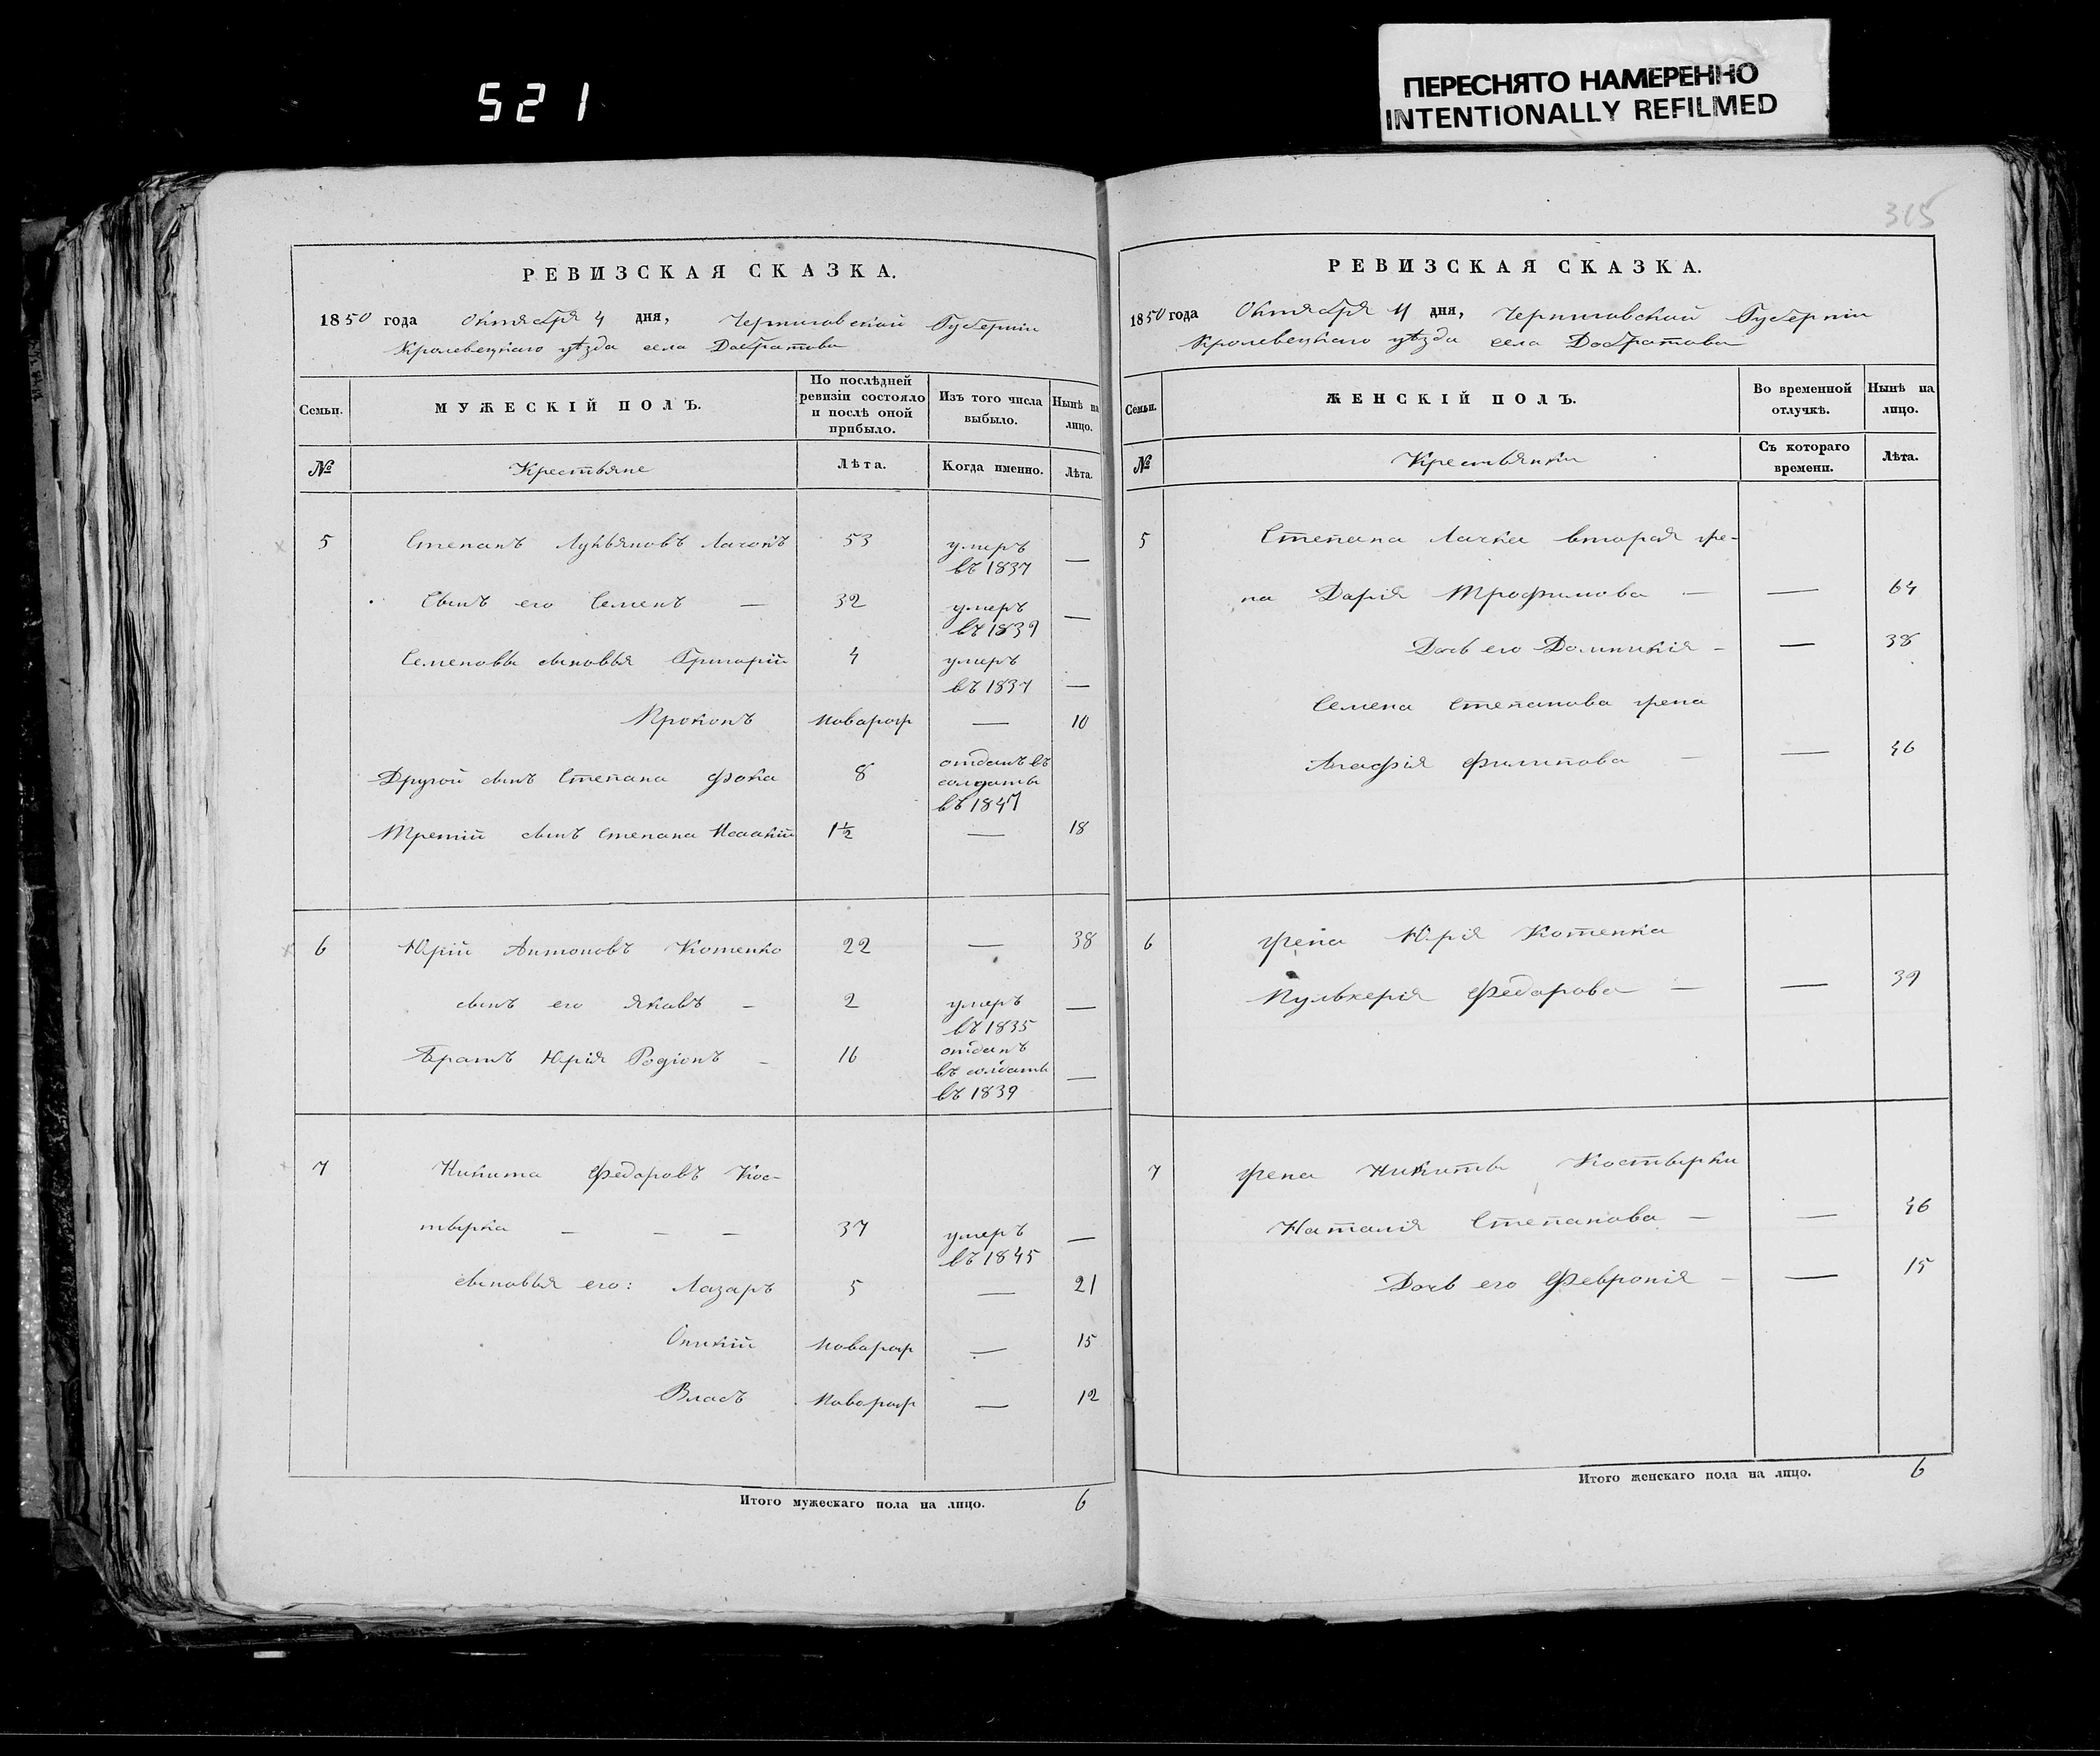 521
ПЕРЕСНЯТО НАМЕРЕННО
INTENTIONALLY REFILMED
РЕВИЗСКАЯ СКАЗКА.
1850 года Октября 4 дня, Черниговской Губерніи
Кролевецкаго уѣзда села Добратова
Семьи.
МУЖЕСКІЙ ПОЛЪ.
По послѣдней ревизіи состояло и послѣ оной прибыло.
Изъ того числа выбыло.
Нынѣ на лицо.
№
Крестьяне
Лѣта.
Когда именно.
Лѣта.
5 Степанъ Лукьяновъ Лачокъ 53 умеръ въ 1837 —
Сынъ его Семенъ — 32 умеръ въ 1839 —
Семеновы сыновья Григорій 4 умеръ въ 1837 —
Прокопъ новорож — 10
Другой сынъ Степана Фока 8 отданъ въ солдаты въ 1847
Третій сынъ Степана Исаакій 1½ — 18
6 Юрій Антоновъ Котенко 22 — 38
сынъ его Яковъ — 2 умеръ въ 1835 —
Братъ Юрія Родіонъ — 16 отданъ въ солдаты въ 1839 —
7 Никита Федоровъ Кос-
тырка — — — 37 умеръ въ 1845 —
сыновья его: Лазарь 5 — 21
новорож — 15
Власъ новорож — 12
Итого мужескаго пола на лицо. 6
315
РЕВИЗСКАЯ СКАЗКА.
1850 года Октября 4 дня, Черниговской Губерніи
Кролевецкаго уѣзда села Добратова
Семьи.
ЖЕНСКІЙ ПОЛЪ.
Во временной отлучкѣ.
Нынѣ на лицо.
№
Крестьянки
Съ котораго времени.
Лѣта.
5 Степана Лачка вторая же-
на Дарія Трофимова — — 64
Дочь его Домникія — — 38
Семена Степанова жена
Агафія Филипова — — 46
6 жена Юрія Котенка
Пульхерія Федорова — — 39
7 жена Никиты Костырки
Наталія Степанова — — 46
Дочь его Февронія — — 15
Итого женскаго пола на лицо. 6